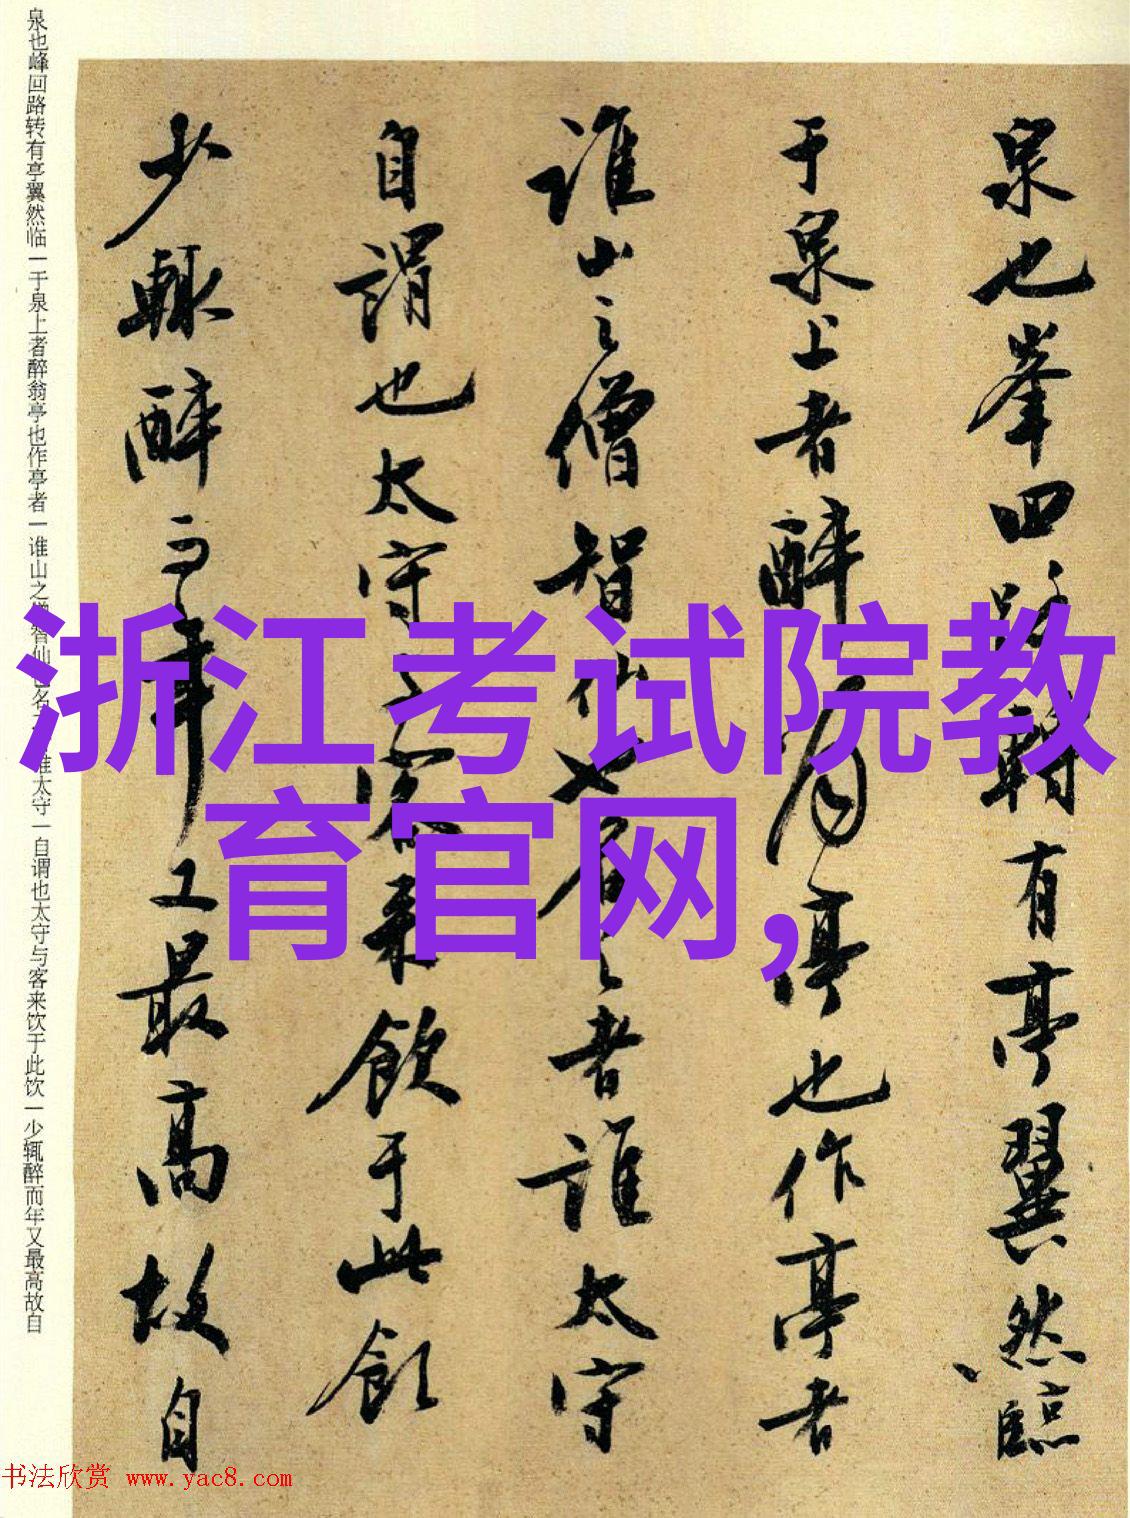 泉也峯回路轉有亭翼然臨
于泉上者醉翁亭也作亭者
誰山之僧智仙也名之者誰太守
自謂也太守与客来飲于此飲
少輒醉而年又最高故自
泉也峰回路转有亭翼然临一于泉上者醉翁亭也作亭者一谁山之僧智仙也名之者谁太守一自谓也太守与客来饮于此饮一少辄醉而年又最高故自
浙江考试院教
育官网,
书法欣赏 www.yac8.com